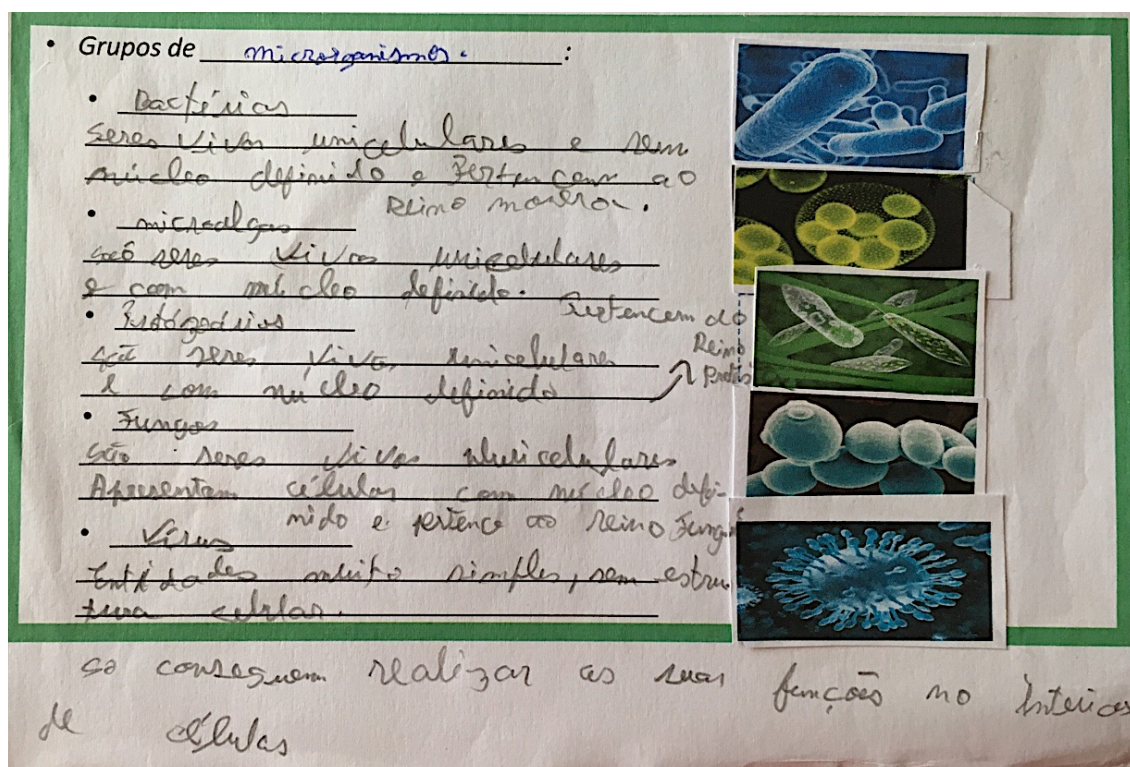 • Grupos de microrganismos. :
• Bactérias
Seres vivos unicelulares e sem
núcleo definido e Pertencem ao
Reino monera.
• microalgas
são seres vivos unicelulares
e com núcleo definido.
Pertencem ao
• Protozoários
Reino
são seres vivos unicelulares
Protis
e com núcleo definido
• Fungos
São seres vivos pluricelulares
Apresentam células com núcleo defi-
nido e pertence ao reino Fungi
• Vírus
Entidades muito simples, sem estru
tura celular.
só conseguem realizar as suas funções no interior
de células